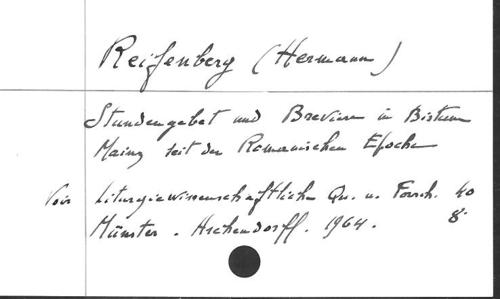 Reifenberg (Hermann)
Stundengebet und Breviere in Bistum
Mainz seit der Romanischen Epoche
Voir Liturgiewissenschaftliche Qu. u. Forsch. 40
Münster. Aschendorff. 1964. 8°